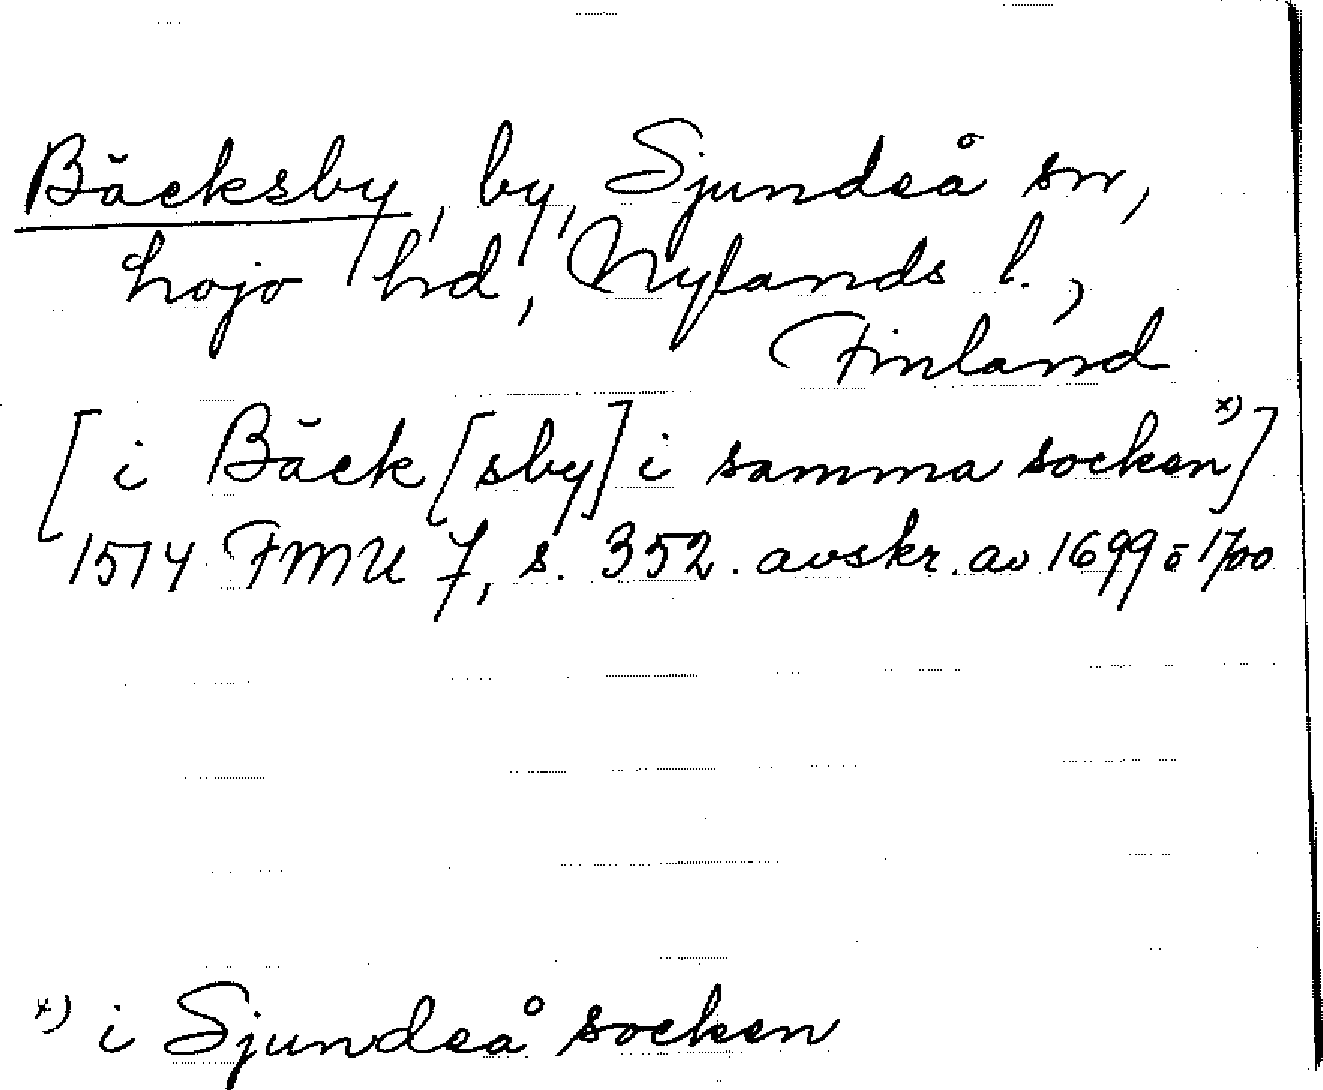 Bäcksby, by, Sjundeå sn,
Lojo hd, Nylands l.,
Finland
[i Bäck[sby] i samma socken x)]
1514 FMU 7, s. 352. avskr. av 1699 o 1700
x) i Sjundeå socken